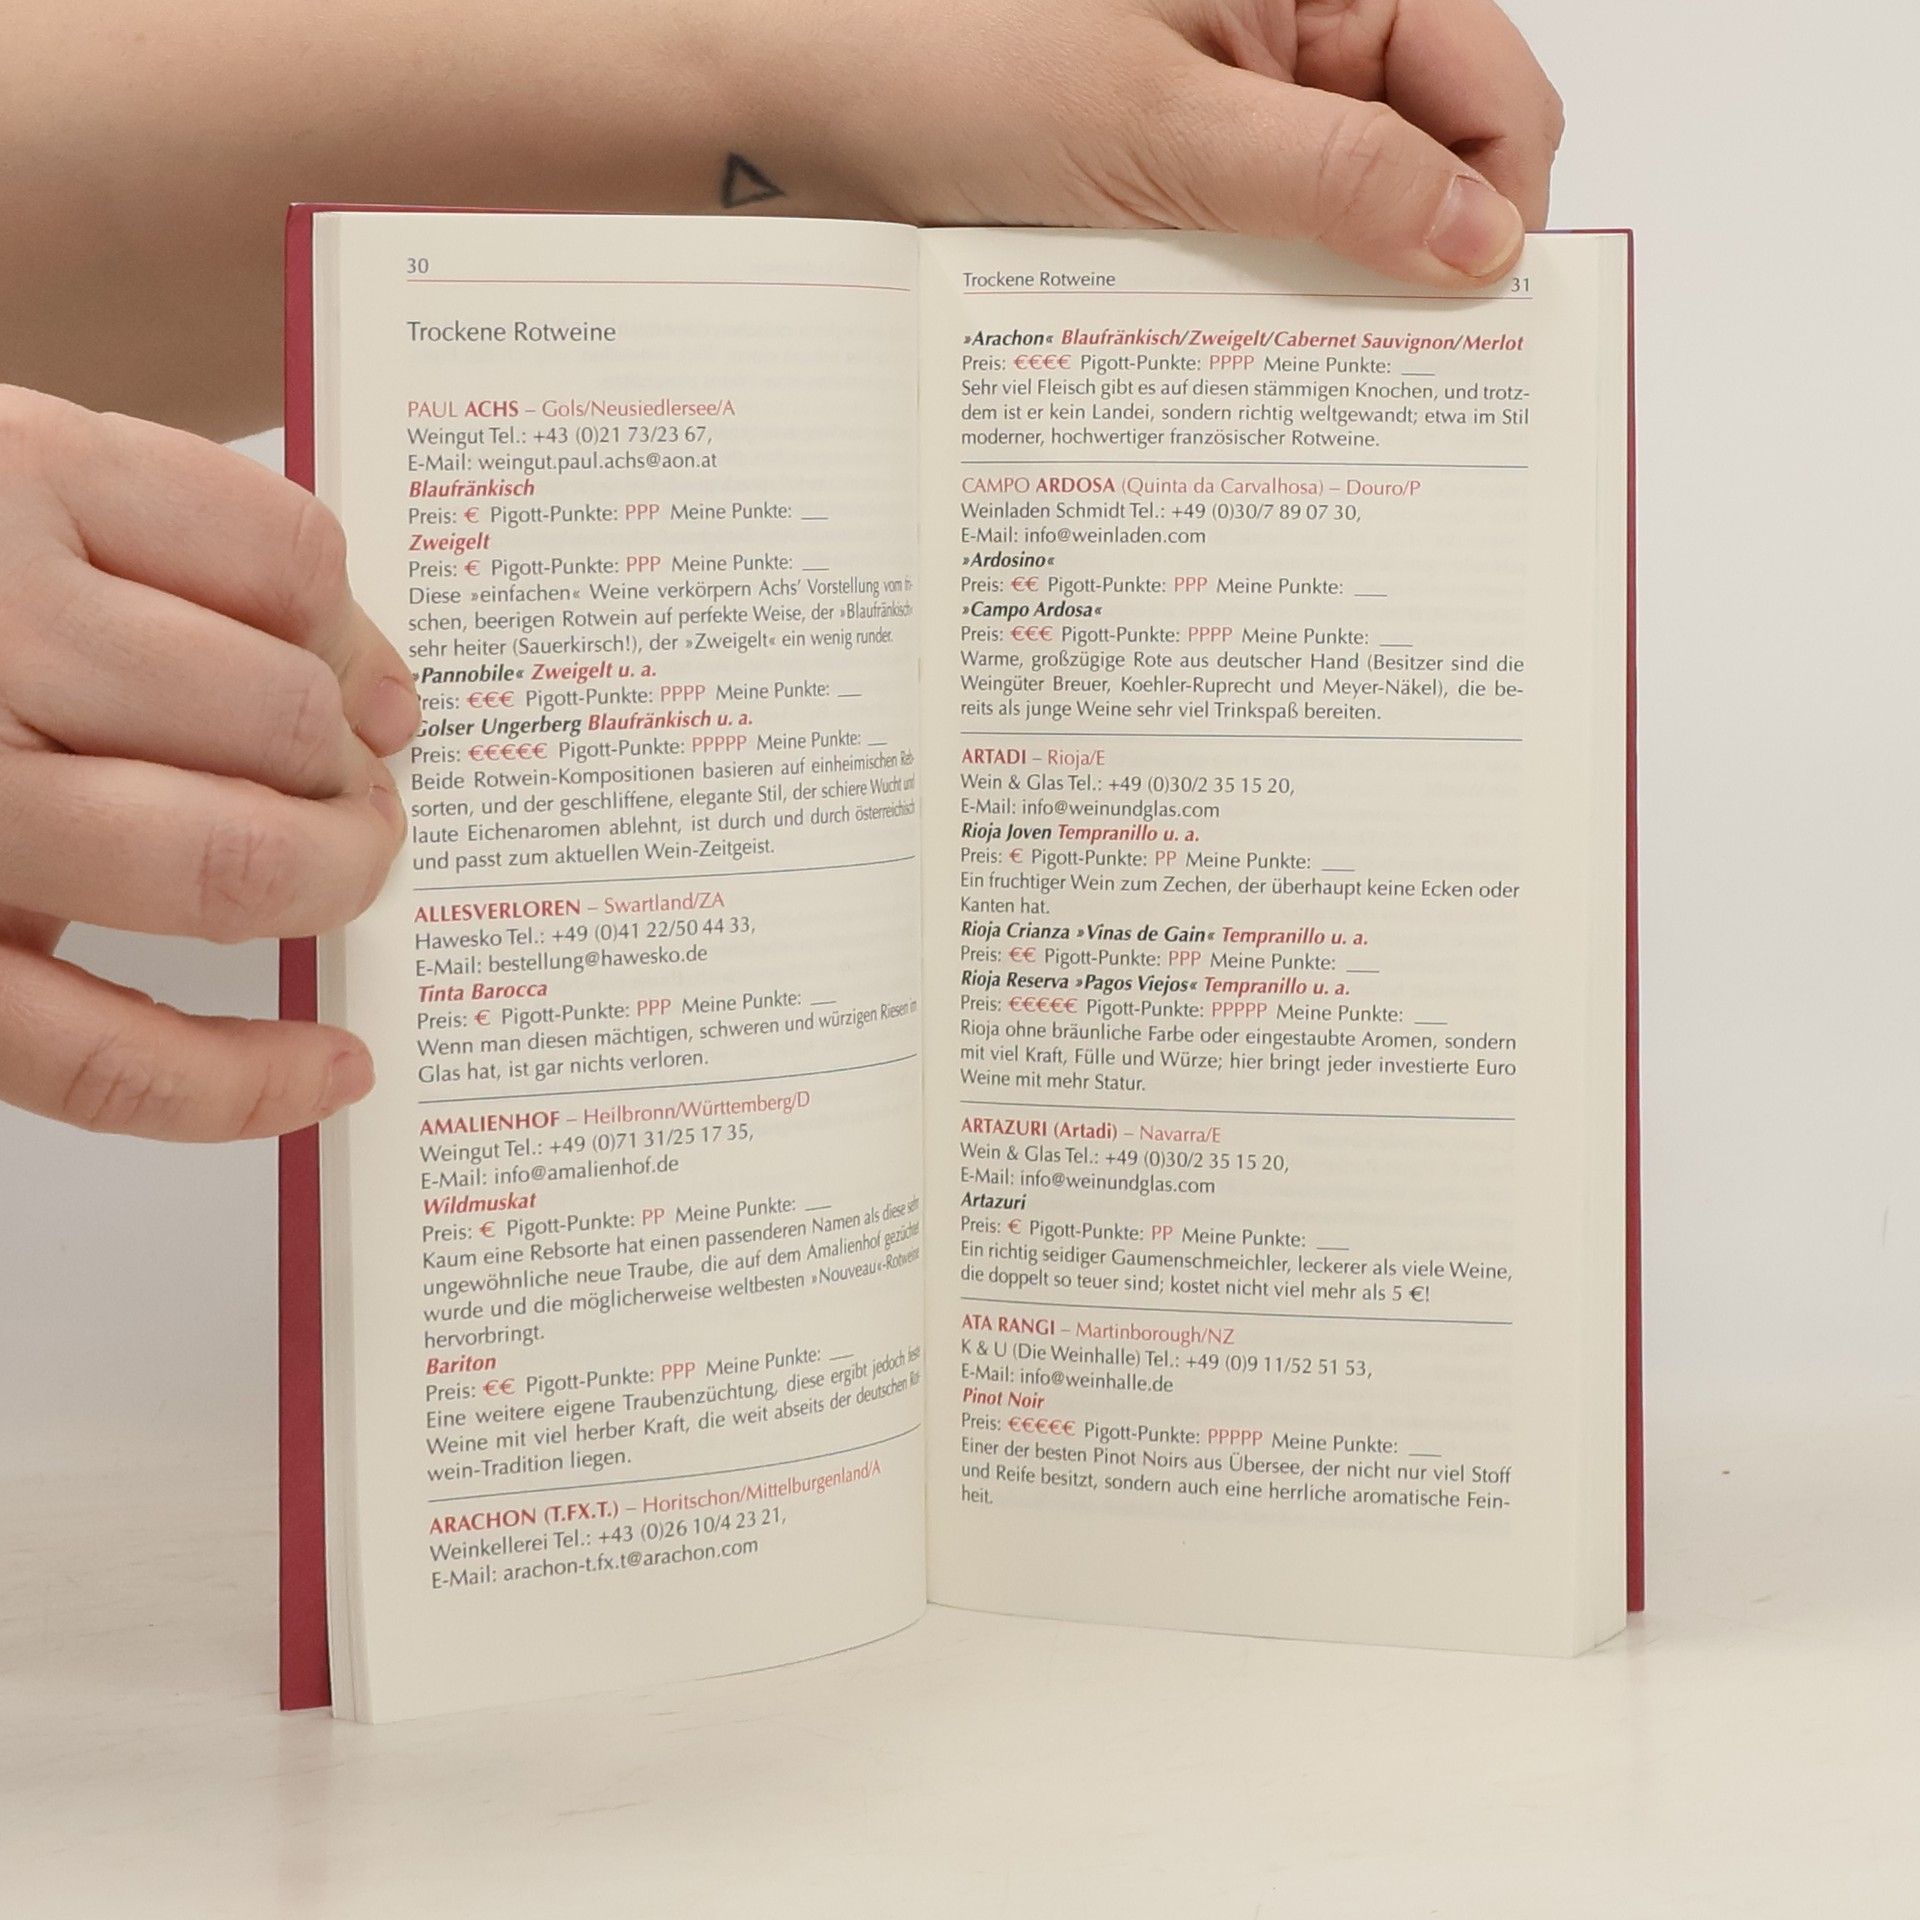 30
Trockene Rotweine
PAUL ACHS – Gols/Neusiedlersee/A
Weingut Tel.: +43 (0)21 73/23 67,
E-Mail: weingut.paul.achs@aon.at
Blaufränkisch
Preis: € Pigott-Punkte: PPP Meine Punkte: __
Zweigelt
Preis: € Pigott-Punkte: PPP Meine Punkte: __
Diese »einfachen« Weine verkörpern Achs’ Vorstellung vom fri-
schen, beerigen Rotwein auf perfekte Weise, der »Blaufränkisch«
sehr heiter (Sauerkirsch!), der »Zweigelt« ein wenig runder.
»Pannobile« Zweigelt u. a.
Preis: €€€ Pigott-Punkte: PPPP Meine Punkte: __
Golser Ungerberg Blaufränkisch u. a.
Preis: €€€€€ Pigott-Punkte: PPPPP Meine Punkte: __
Beide Rotwein-Kompositionen basieren auf einheimischen Reb-
sorten, und der geschliffene, elegante Stil, der schiere Wucht und
laute Eichenaromen ablehnt, ist durch und durch österreichisch
und passt zum aktuellen Wein-Zeitgeist.
ALLESVERLOREN – Swartland/ZA
Hawesko Tel.: +49 (0)41 22/50 44 33,
E-Mail: bestellung@hawesko.de
Tinta Barocca
Preis: € Pigott-Punkte: PPP Meine Punkte: __
Wenn man diesen mächtigen, schweren und würzigen Riesen im
Glas hat, ist gar nichts verloren.
AMALIENHOF – Heilbronn/Württemberg/D
Weingut Tel.: +49 (0)71 31/25 17 35,
E-Mail: info@amalienhof.de
Wildmuskat
Preis: € Pigott-Punkte: PP Meine Punkte: __
Kaum eine Rebsorte hat einen passenderen Namen als diese sehr
ungewöhnliche neue Traube, die auf dem Amalienhof gezüchtet
wurde und die möglicherweise weltbesten »Nouveau«-Rotweine
hervorbringt.
Bariton
Preis: €€ Pigott-Punkte: PPP Meine Punkte: __
Eine weitere eigene Traubenzüchtung, diese ergibt jedoch feste
Weine mit viel herber Kraft, die weit abseits der deutschen Rot-
wein-Tradition liegen.
ARACHON (T.FX.T.) – Horitschon/Mittelburgenland/A
Weinkellerei Tel.: +43 (0)26 10/4 23 21,
E-Mail: arachon-t.fx.t@arachon.com
Trockene Rotweine 31
»Arachon« Blaufränkisch/Zweigelt/Cabernet Sauvignon/Merlot
Preis: €€€€ Pigott-Punkte: PPPP Meine Punkte: __
Sehr viel Fleisch gibt es auf diesen stämmigen Knochen, und trotz-
dem ist er kein Landei, sondern richtig weltgewandt; etwa im Stil
moderner, hochwertiger französischer Rotweine.
CAMPO ARDOSA (Quinta da Carvalhosa) – Douro/P
Weinladen Schmidt Tel.: +49 (0)30/7 89 07 30,
E-Mail: info@weinladen.com
»Ardosino«
Preis: €€ Pigott-Punkte: PPP Meine Punkte: __
»Campo Ardosa«
Preis: €€€ Pigott-Punkte: PPPP Meine Punkte: __
Warme, großzügige Rote aus deutscher Hand (Besitzer sind die
Weingüter Breuer, Koehler-Ruprecht und Meyer-Näkel), die be-
reits als junge Weine sehr viel Trinkspaß bereiten.
ARTADI – Rioja/E
Wein & Glas Tel.: +49 (0)30/2 35 15 20,
E-Mail: info@weinundglas.com
Rioja Joven Tempranillo u. a.
Preis: € Pigott-Punkte: PP Meine Punkte: __
Ein fruchtiger Wein zum Zechen, der überhaupt keine Ecken oder
Kanten hat.
Rioja Crianza »Vinas de Gain« Tempranillo u. a.
Preis: €€ Pigott-Punkte: PPP Meine Punkte: __
Rioja Reserva »Pagos Viejos« Tempranillo u. a.
Preis: €€€€€ Pigott-Punkte: PPPPP Meine Punkte: __
Rioja ohne bräunliche Farbe oder eingestaubte Aromen, sondern
mit viel Kraft, Fülle und Würze; hier bringt jeder investierte Euro
Weine mit mehr Statur.
ARTAZURI (Artadi) – Navarra/E
Wein & Glas Tel.: +49 (0)30/2 35 15 20,
E-Mail: info@weinundglas.com
Artazuri
Preis: € Pigott-Punkte: PP Meine Punkte: __
Ein richtig seidiger Gaumenschmeichler, leckerer als viele Weine,
die doppelt so teuer sind; kostet nicht viel mehr als 5 €!
ATA RANGI – Martinborough/NZ
K & U (Die Weinhalle) Tel.: +49 (0)9 11/52 51 53,
E-Mail: info@weinhalle.de
Pinot Noir
Preis: €€€€€ Pigott-Punkte: PPPPP Meine Punkte: __
Einer der besten Pinot Noirs aus Übersee, der nicht nur viel Stoff
und Reife besitzt, sondern auch eine herrliche aromatische Fein-
heit.